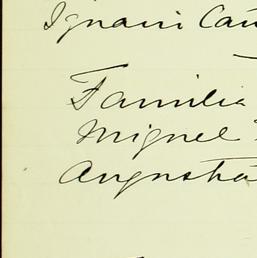 Ignacio Cau
Familia
Miguel
Angustia